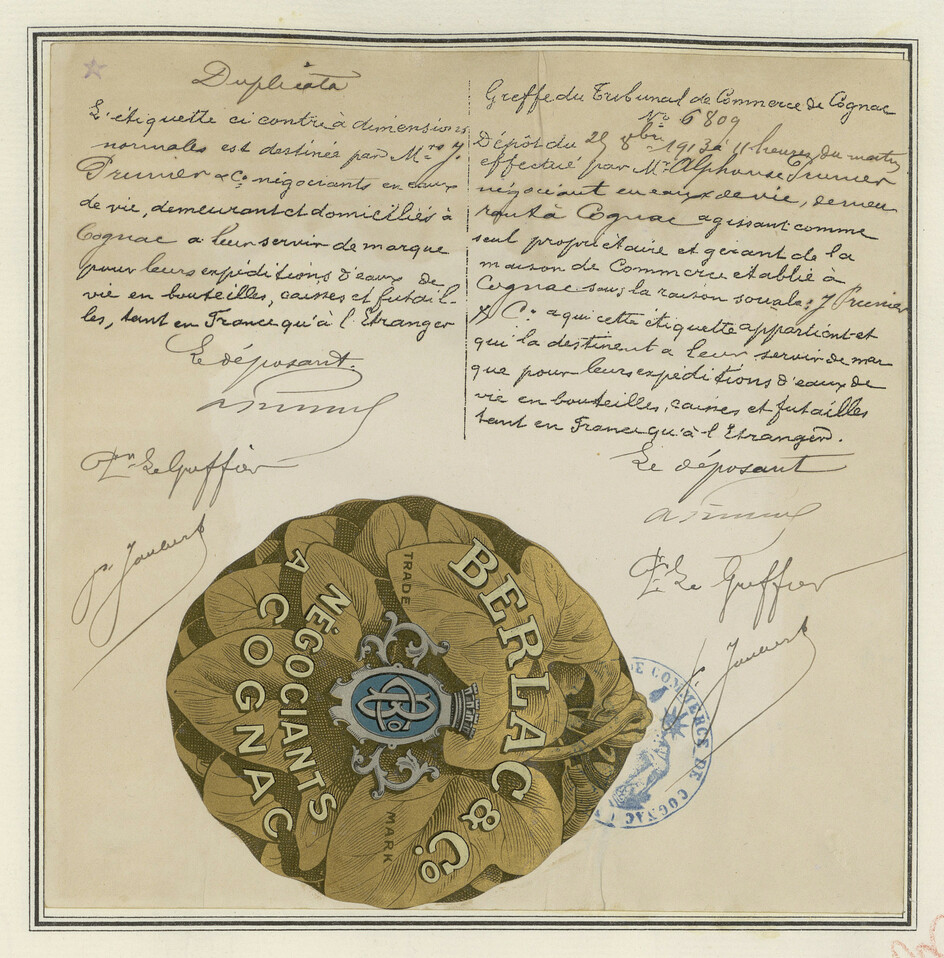 Duplicata
L'étiquette ci contre à dimensions
normales est destinée par Mrs J.
Prunier & Co négociants en eaux
de vie, demeurant et domiciliés à
Cognac a leur servir de marque
pour leurs expéditions d'eaux de
vie en bouteilles, caisses et futail-
les, tant en France qu'à l'Etranger
Le déposant.
Pr Le Greffier
Greffe du Tribunal de Commerce de Cognac
No 6809
Dépôt du 29 8bre 1913 à 11 heures du matin
effectué par Mr Alphonse Prunier
négociant en eaux de vie, demeu
rant à Cognac agissant comme
seul propriétaire et gérant de la
maison de Commerce etablie à
Cognac sous la raison sociale; J Prunier
& Co a qui cette étiquette appartient et
qui la destinent a leur servir de mar
que pour leurs expéditions d'eaux de
vie en bouteilles, caisses et futailles
tant en France qu'à l'Etranger.
Le déposant
Pr Le Greffier
BERLAC & Co
TRADE
MARK
NÉGOCIANTS
A
COGNAC
DE COMMERCE DE COGNAC